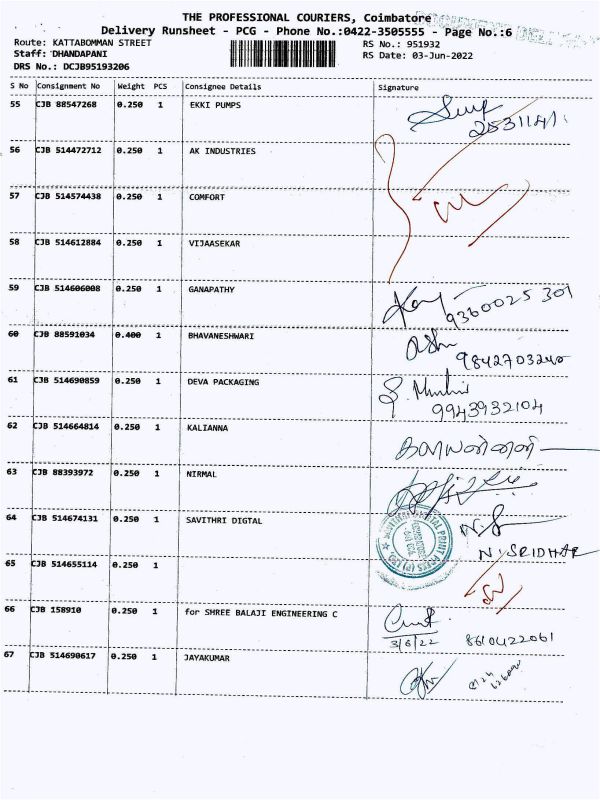 THE PROFESSIONAL COURIERS, Coimbatore
Delivery Runsheet - PCG - Phone No.:0422-3505555 - Page No.:6
Route: KATTABOMMAN STREET RS No.: 951932
Staff: DHANDAPANI RS Date: 03-Jun-2022
DRS No.: DCJB95193206
S No Consignment No Weight PCS Consignee Details Signature
55 CJB 88547268 0.250 1 EKKI PUMPS
2531141
56 CJB 514472712 0.250 1 AK INDUSTRIES
57 CJB 514574438 0.250 1 COMFORT
58 CJB 514612884 0.250 1 VIJAASEKAR
59 CJB 514606008 0.250 1 GANAPATHY
9360025301
60 CJB 88591034 0.400 1 BHAVANESHWARI
9842703240
61 CJB 514690859 0.250 1 DEVA PACKAGING
9943932104
62 CJB 514664814 0.250 1 KALIANNA
63 CJB 88393972 0.250 1 NIRMAL
64 CJB 514674131 0.250 1 SAVITHRI DIGTAL
N. SRIDHAR
65 CJB 514655114 0.250 1
66 CJB 158910 0.250 1 for SHREE BALAJI ENGINEERING C
3/6/22 8610422061
67 CJB 514690617 0.250 1 JAYAKUMAR